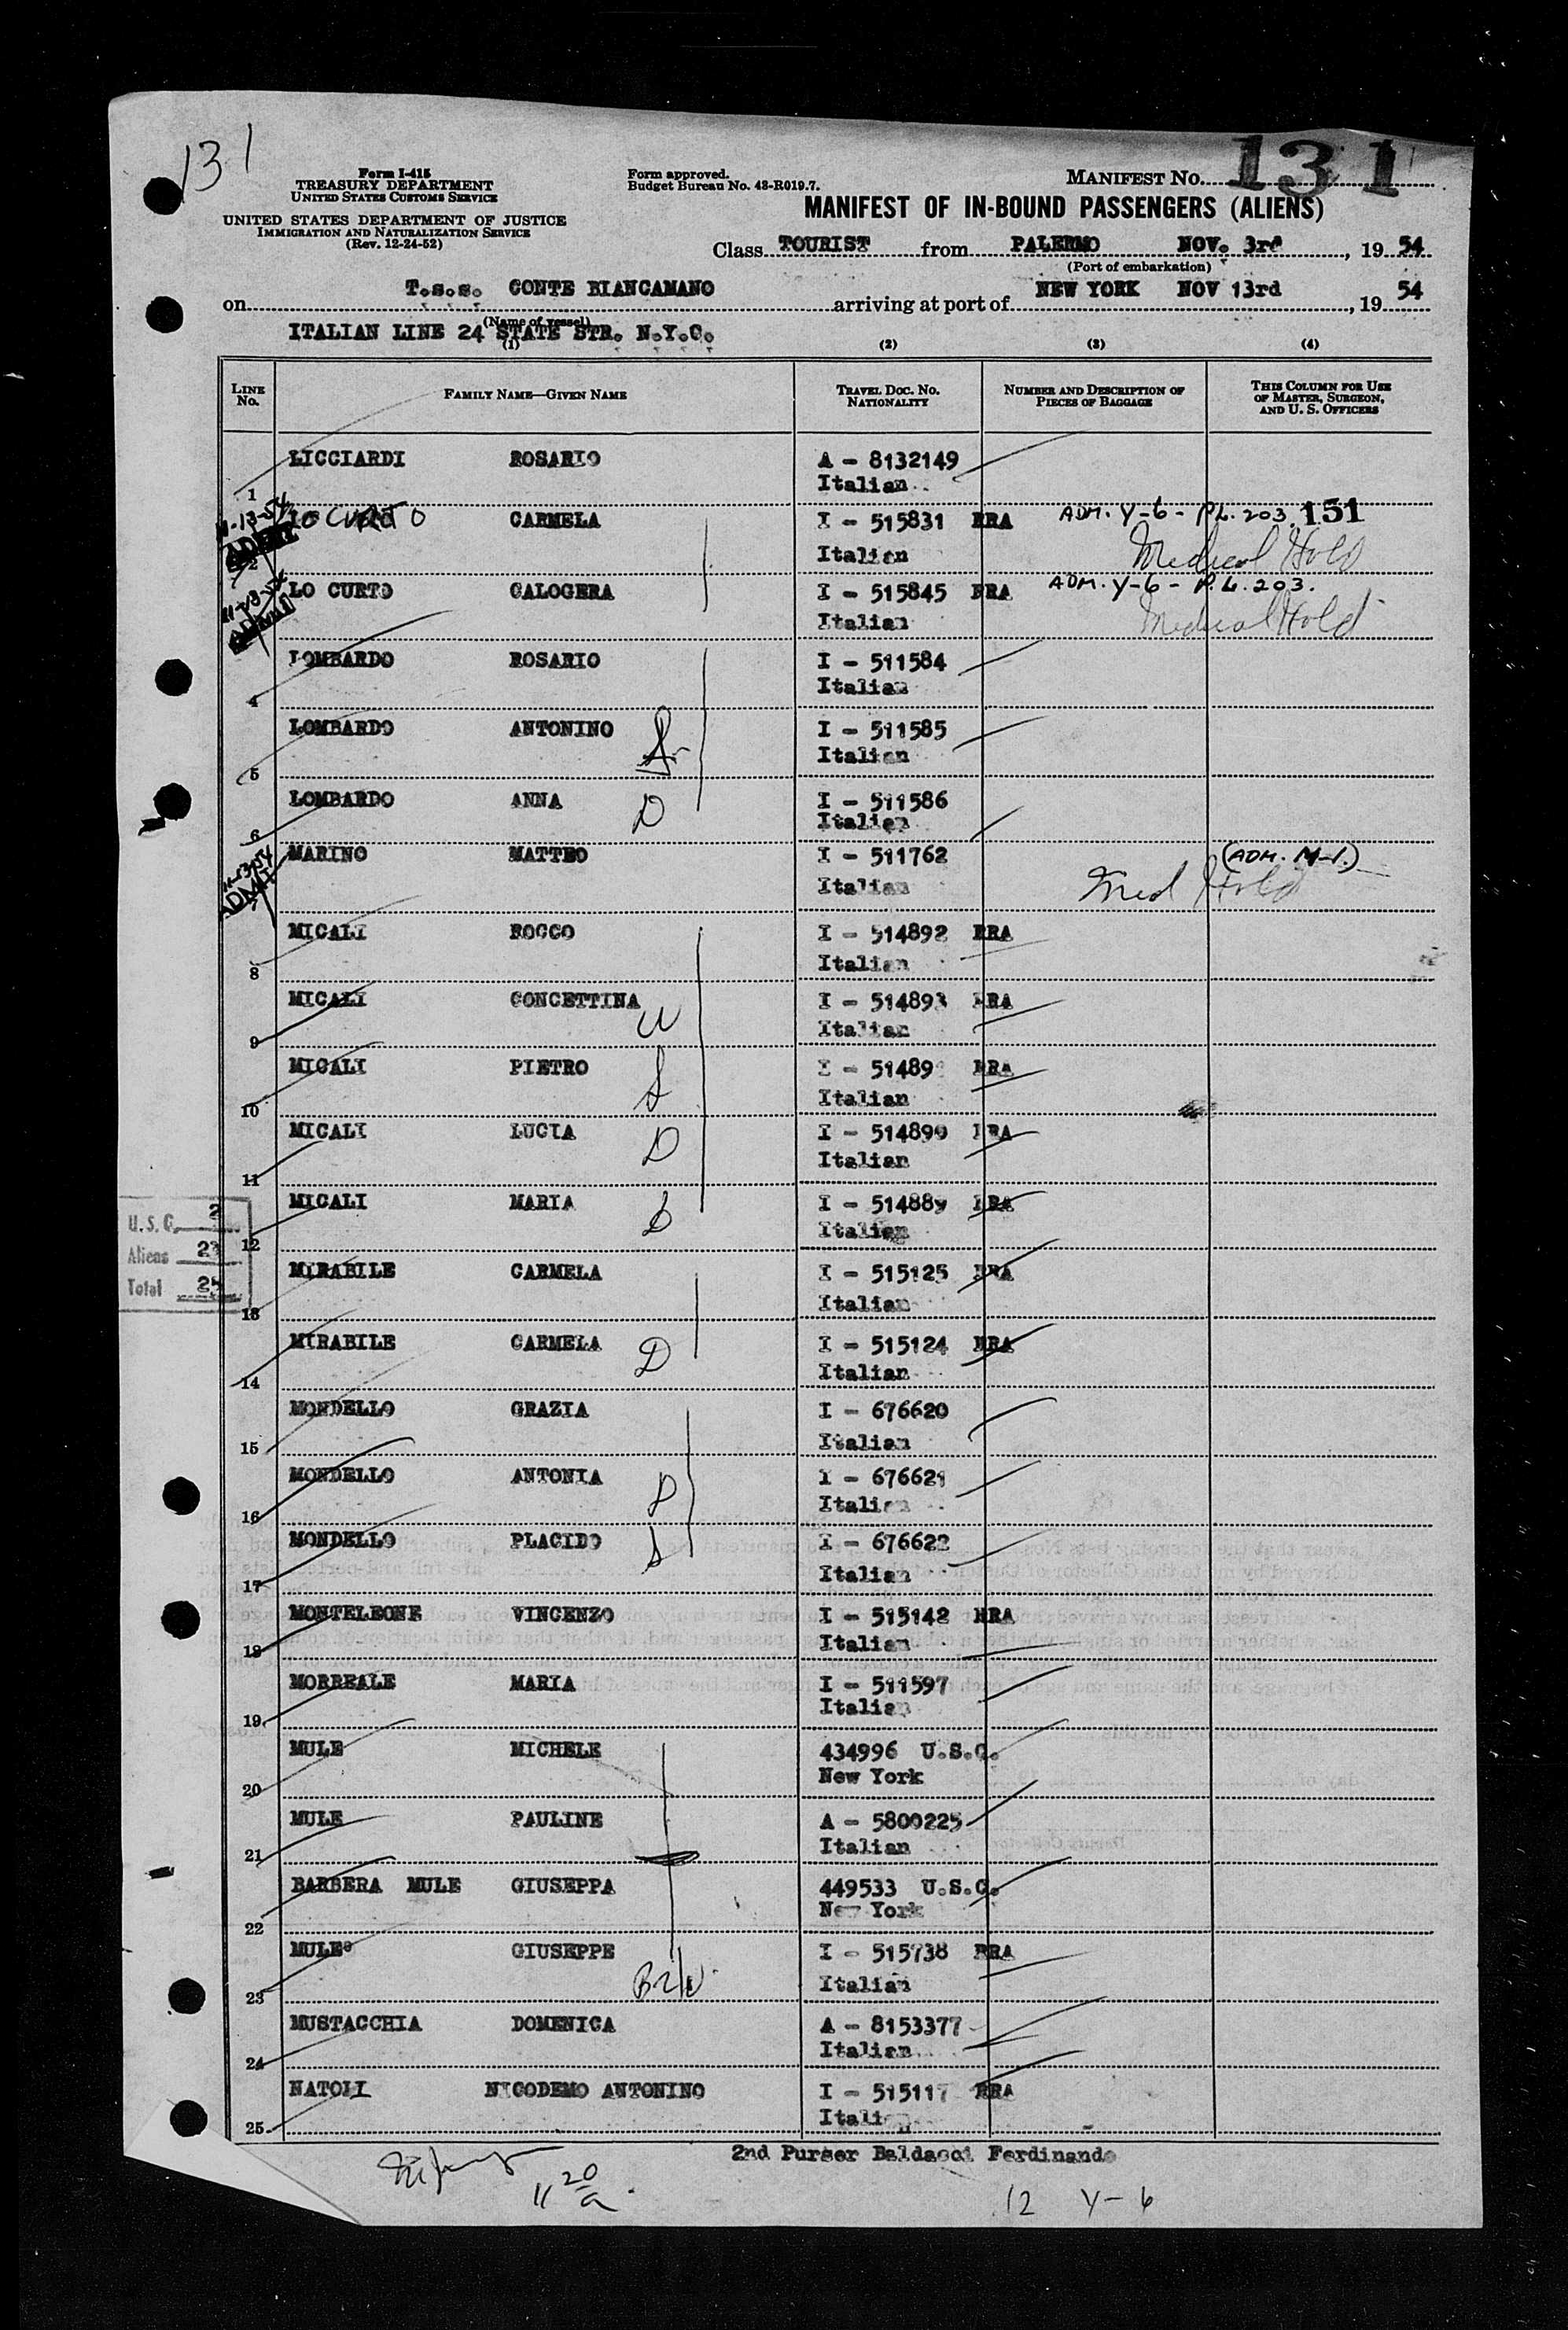 131
Form I-415
TREASURY DEPARTMENT
UNITED STATES CUSTOMS SERVICE
UNITED STATES DEPARTMENT OF JUSTICE
IMMIGRATION AND NATURALIZATION SERVICE
(Rev. 12-24-52)
Form approved.
Budget Bureau No. 43-R019.7.
MANIFEST NO. 131
MANIFEST OF IN-BOUND PASSENGERS (ALIENS)
Class TOURIST from PALERMO NOV. 3rd, 19 54
(Port of embarkation)
on T.s.s. CONTE BIANCAMANO arriving at port of NEW YORK NOV 13rd, 19 54
(Name of vessel)
ITALIAN LINE 24 STATE STR. N.Y.C.
(1) (2) (3) (4)
LINE No. FAMILY NAME—GIVEN NAME TRAVEL DOC. NO. NATIONALITY NUMBER AND DESCRIPTION OF PIECES OF BAGGAGE THIS COLUMN FOR USE OF MASTER, SURGEON, AND U. S. OFFICERS
1 LICCIARDI ROSARIO A - 8132149
Italian
11-13-54 2 LO CURTO CARMELA I - 515831 RRA ADM. Y-6 - P.L. 203. 151
Italian Medical Hold
11-13-54 LO CURTO CALOGERA I - 515845 RRA ADM. Y-6 - P.L. 203.
Italian Medical Hold
4 LOMBARDO ROSARIO I - 511584
Italian
5 LOMBARDO ANTONINO I - 511585
Italian
6 LOMBARDO ANNA D I - 511586
Italian
11-13-54 MARINO MATTEO I - 511762 (ADM. M-1.)
Italian Med Hold
8 MICALI ROCCO I - 514892 RRA
Italian
9 MICALI CONCETTINA W I - 514893 RRA
Italian
10 MICALI PIETRO S I - 51489 RRA
Italian
11 MICALI LUCIA D I - 514890 RRA
Italian
12 MICALI MARIA D I - 514889 RRA
Italian
U.S.C. 2
Aliens 23
Total 25
13 MIRABILE CARMELA I - 515125 RRA
Italian
14 MIRABILE CARMELA D I - 515124 RRA
Italian
15 MONDELLO GRAZIA I - 676620
Italian
16 MONDELLO ANTONIA D I - 676621
Italian
17 MONDELLO PLACIDO S I - 676622
Italian
18 MONTELEONE VINCENZO I - 515142 RRA
Italian
19 MORREALE MARIA I - 511597
Italian
20 MULE MICHELE 434996 U.S.C.
New York
21 MULE PAULINE A - 5800225
Italian
22 BARBERA MULE GIUSEPPA 449533 U.S.C.
New York
23 MULE GIUSEPPE I - 515738 RRA
Italian
24 MUSTACCHIA DOMENICA A - 8153377
Italian
25 NATOLI NICODEMO ANTONINO I - 515117 RRA
Italian
2nd Purser Baldacci Ferdinando
11 20 a
12 Y-6